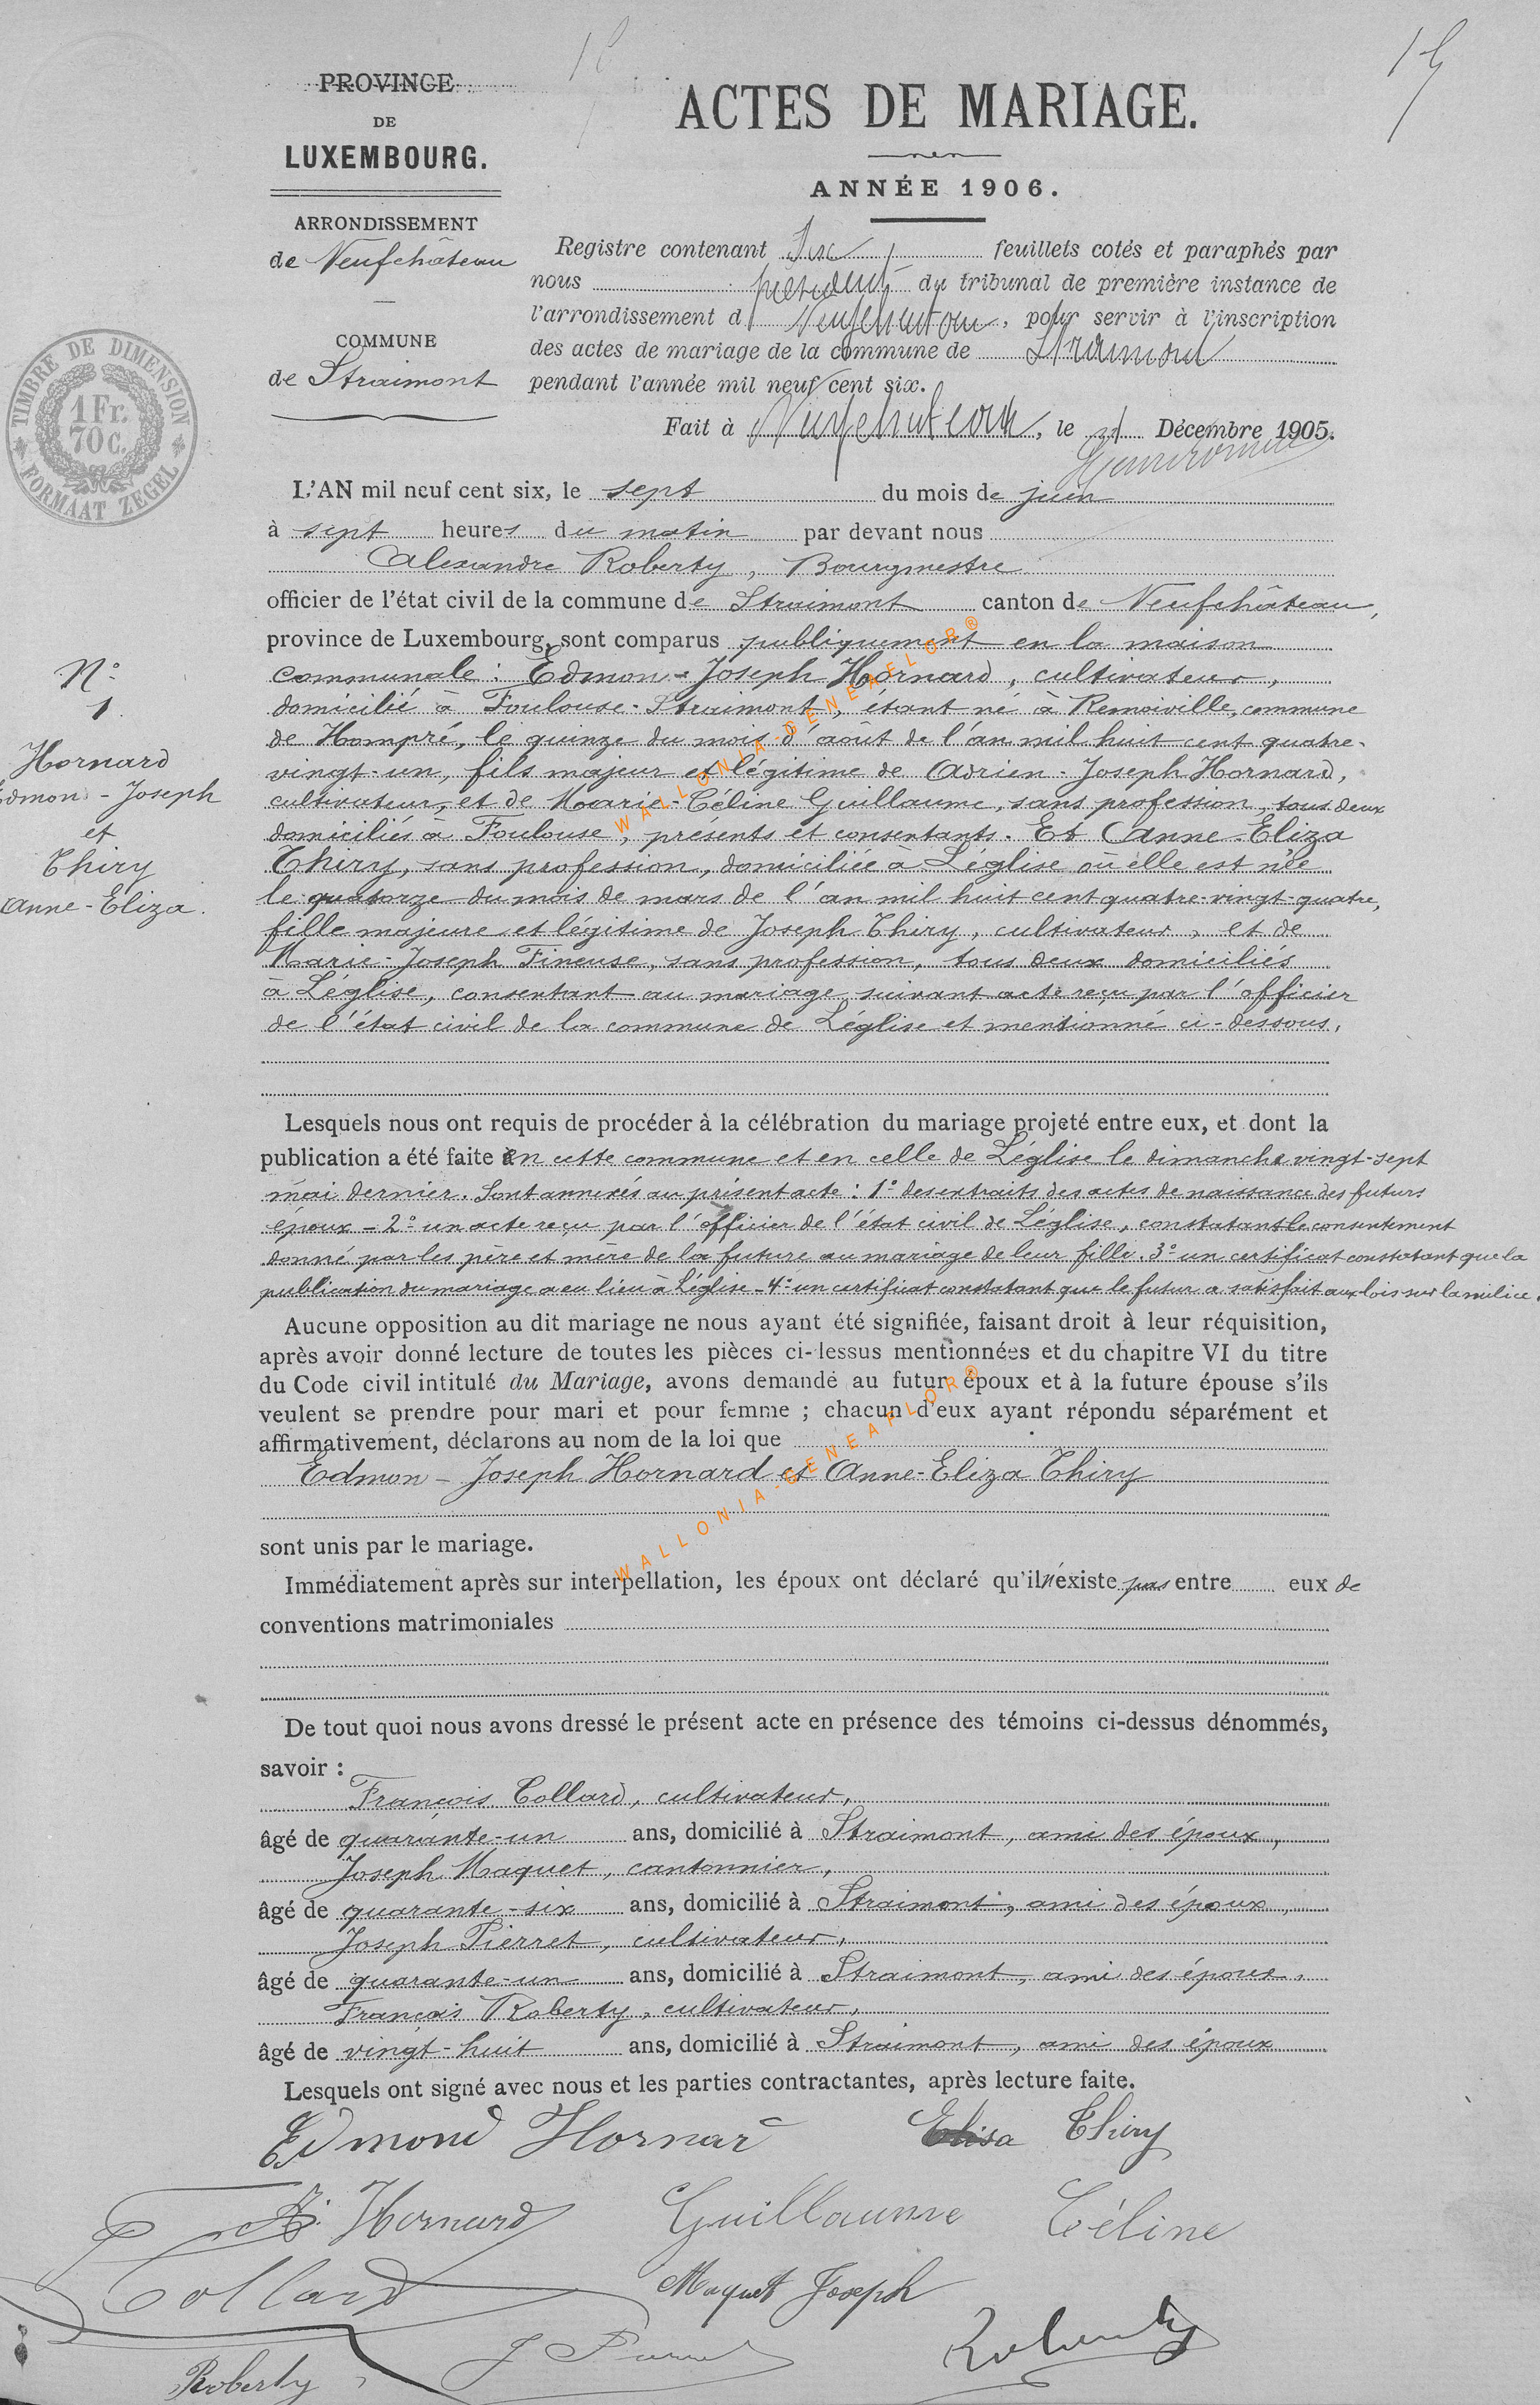 15
PROVINCE
DE
LUXEMBOURG.
ARRONDISSEMENT
de Neufchâteau
COMMUNE
de Straimont
TIMBRE DE DIMENSION
1 Fr.
70 c.
FORMAAT ZEGEL
ACTES DE MARIAGE.
ANNÉE 1906.
Registre contenant feuillets cotés et paraphés par
nous président du tribunal de première instance de
l'arrondissement d Neufchateau, pour servir à l'inscription
des actes de mariage de la commune de Straimont
pendant l'année mil neuf cent six.
Fait à Neufchateau, le Décembre 1905.
L'AN mil neuf cent six, le sept du mois de juin
à sept heures du matin par devant nous
Alexandre Roberty, Bourgmestre
officier de l'état civil de la commune de Straimont canton de Neufchâteau,
province de Luxembourg, sont comparus publiquement en la maison
communale : Edmon-Joseph Hornard, cultivateur,
domicilié à Foulouse-Straimont, étant né à Remoiville, commune
de Hompré, le quinze du mois d'août de l'an mil huit cent quatre-
vingt-un, fils majeur et légitime de Adrien-Joseph Hornard,
cultivateur, et de Marie-Céline Guillaume, sans profession, tous deux
domiciliés à Foulouse, présents et consentants. Et Anne-Eliza
Thiry, sans profession, domiciliée à Léglise où elle est née
le quatorze du mois de mars de l'an mil huit cent quatre-vingt-quatre,
fille majeure et légitime de Joseph Thiry, cultivateur, et de
Marie-Joseph Fineuse, sans profession, tous deux domiciliés
à Léglise, consentant au mariage suivant acte reçu par l'officier
de l'état civil de la commune de Léglise et mentionné ci-dessous.
N°
1
Hornard
Edmon-Joseph
et
Thiry
Anne-Eliza.
Lesquels nous ont requis de procéder à la célébration du mariage projeté entre eux, et dont la
publication a été faite en cette commune et en celle de Léglise le dimanche vingt-sept
mai dernier. Sont annexés au présent acte : 1° des extraits des actes de naissance des futurs
époux - 2° un acte reçu par l'officier de l'état civil de Léglise, constatant le consentement
donné par les père et mère de la future au mariage de leur fille. 3° un certificat constatant que la
publication du mariage a eu lieu à Léglise - 4° un certificat constatant que le futur a satisfait aux lois sur la milice.
Aucune opposition au dit mariage ne nous ayant été signifiée, faisant droit à leur réquisition,
après avoir donné lecture de toutes les pièces ci-dessus mentionnées et du chapitre VI du titre
du Code civil intitulé du Mariage, avons demandé au futur époux et à la future épouse s'ils
veulent se prendre pour mari et pour femme ; chacun d'eux ayant répondu séparément et
affirmativement, déclarons au nom de la loi que
Edmon-Joseph Hornard et Anne-Eliza Thiry
sont unis par le mariage.
Immédiatement après sur interpellation, les époux ont déclaré qu'il n'existe pas entre eux de
conventions matrimoniales
De tout quoi nous avons dressé le présent acte en présence des témoins ci-dessus dénommés,
savoir :
François Collard, cultivateur,
âgé de quarante-un ans, domicilié à Straimont, ami des époux,
Joseph Maquet, cantonnier,
âgé de quarante-six ans, domicilié à Straimont, ami des époux,
Joseph Pierret, cultivateur,
âgé de quarante-un ans, domicilié à Straimont, ami des époux,
François Roberty, cultivateur,
âgé de vingt-huit ans, domicilié à Straimont, ami des époux
Lesquels ont signé avec nous et les parties contractantes, après lecture faite.
Edmond Hornard Elisa Thiry
A. J. Hornard Guillaume Céline
Collard Maquet Joseph
Roberty J Pierret Roberty
WALLONIA-GENEAFLOR®
WALLONIA-GENEAFLOR®